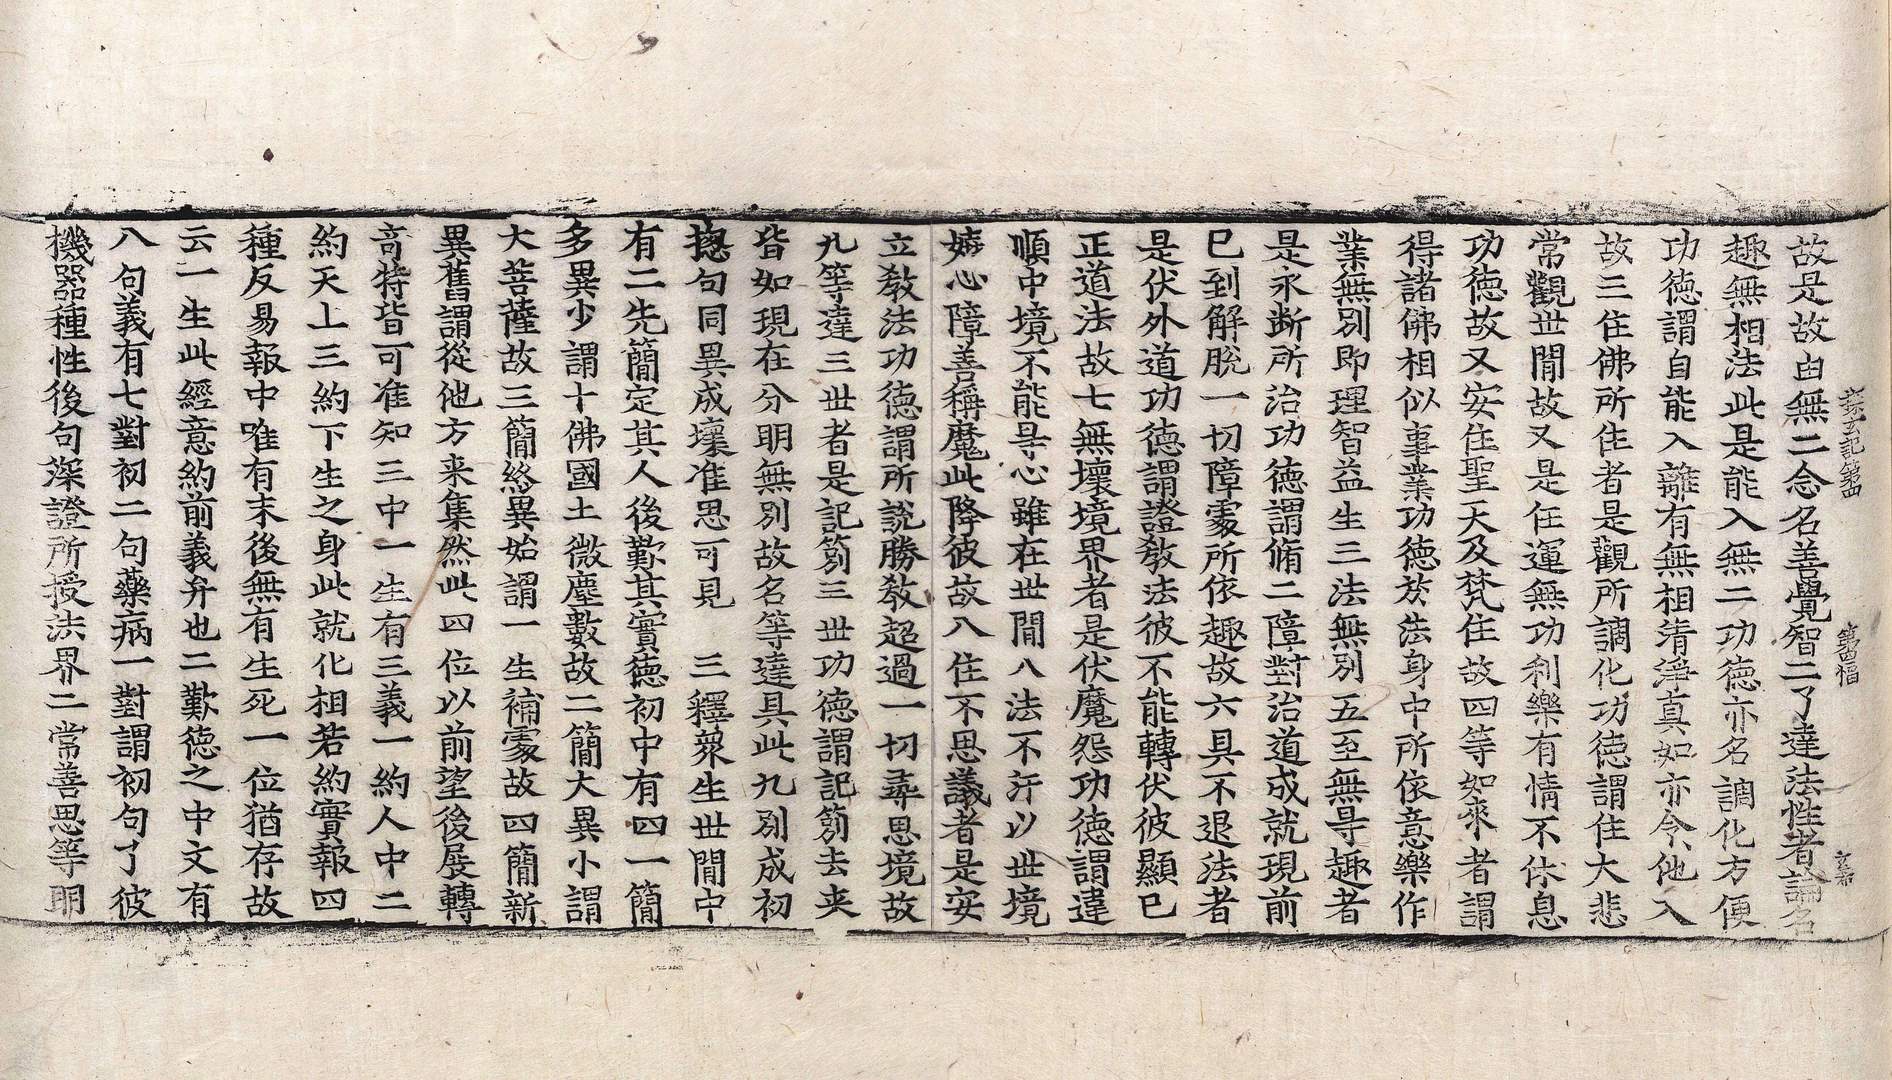 探玄記第四　第四幅　玄希
故是故由無二念名善覺智二了達法性者論名
趣無相法此是能入無二功德亦名調化方便
功德謂自能入離有無相清淨真如亦令他入
故三住佛所住者是觀所調化功德謂住大悲
常觀世間故又是任運無功利樂有情不休息
功德故又安住聖天及梵住故四等如來者謂
得諸佛相似事業功德於法身中所依意樂作
業無別即理智益生三法無別五至無㝵趣者
是永断所治功德謂脩二障對治道成就現前
已到解脫一切障處所依趣故六具不退法者
是伏外道功德謂證教法彼不能轉伏彼顯已
正道法故七無壞境界者是伏魔怨功德謂違
順中境不能㝵心雖在世間八法不汙以世境
嬈心障善稱魔此降彼故八住不思議者是安
立教法功德謂所說勝教超過一切尋思境故
九等達三世者是記莂三世功德謂記莂去来
皆如現在分明無別故名等達具此九別成初
揔句同異成壞准思可見　三釋衆生世間中
有二先簡定其人後歎其實德初中有四一簡
多異少謂十佛國土微塵數故二簡大異小謂
大菩薩故三簡終異始謂一生補處故四簡新
異舊謂從他方来集然此四位以前望後展轉
竒特皆可准知三中一生有三義一約人中二
約天上三約下生之身此就化相若約實報四
種反易報中唯有末後無有生死一位猶存故
云一生此經意約前義弁也二歎德之中文有
八句義有七對初二句藥病一對謂初句了彼
機器種性後句深證所授法界二常善思等明